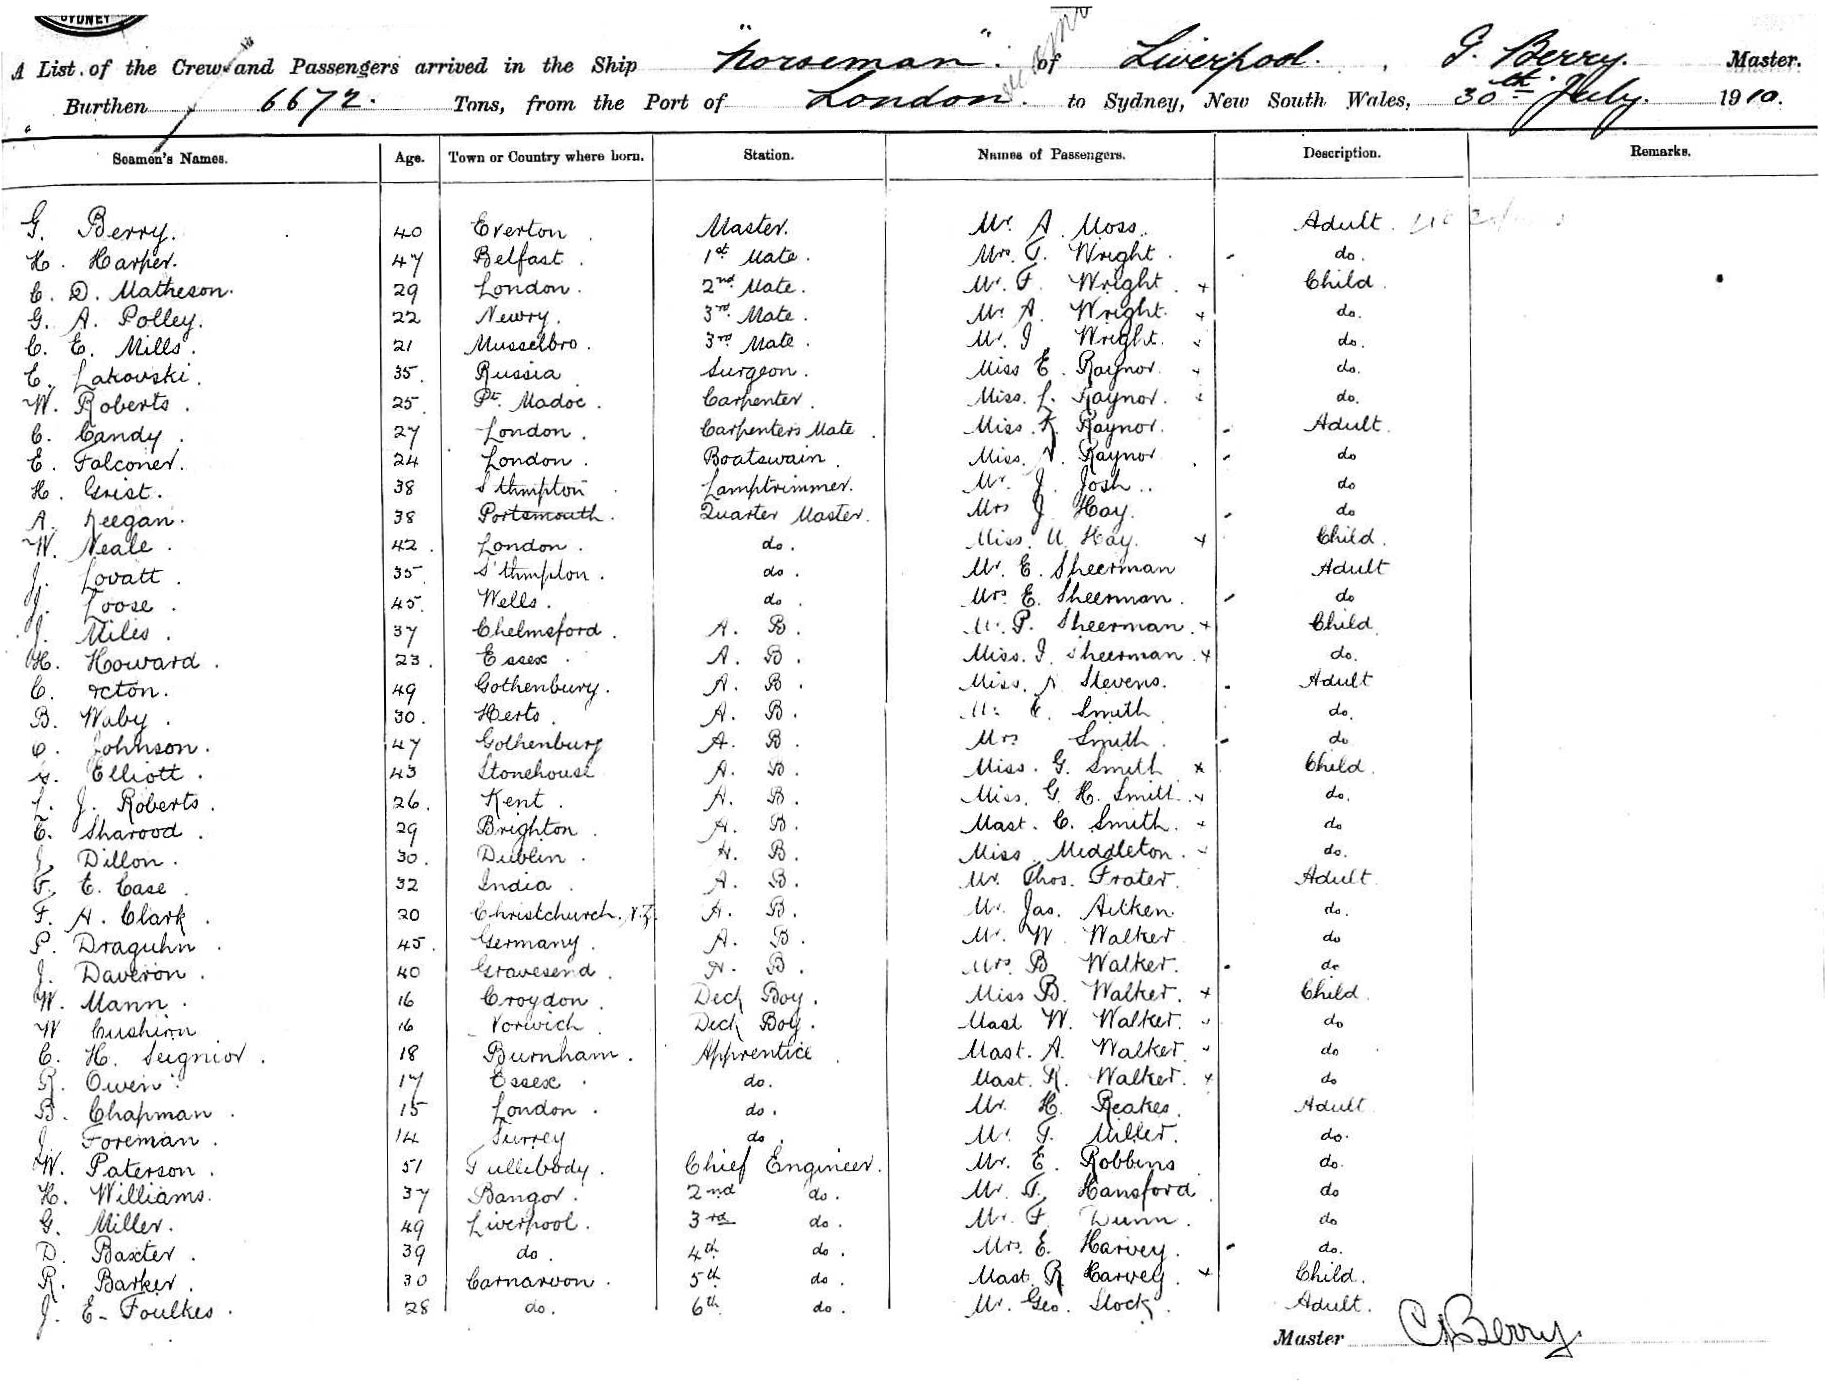 SYDNEY
A List of the Crew and Passengers arrived in the Ship "Norseman" of Liverpool. G. Berry. Master.
Burthen 6672. Tons, from the Port of London. to Sydney, New South Wales, 30th July. 1910.
Seamen's Names. Age. Town or Country where born. Station. Names of Passengers. Description. Remarks.
G. Berry. 40 Everton. Master. Mr. A Moss. Adult.
H. Harper. 47 Belfast. 1st Mate. Mrs. T. Wright. do.
C. D. Matheson. 29 London. 2nd Mate. Mr. F. Wright. x Child.
G. A. Polley. 22 Newry. 3rd Mate. Mr. A. Wright. x do.
C. E. Mills. 21 Musselbro. 3rd Mate. Mr. J Wright. x do.
E. Lakovski. 35. Russia Surgeon. Miss E. Raynor. x do.
W. Roberts. 25. Pt. Madoc. Carpenter. Miss. L. Raynor. x do.
C. Candy. 27 London. Carpenters Mate. Miss. K. Raynor. Adult.
E. Falconer. 24 London. Boatswain. Miss. V. Raynor do
H. Grist. 38 S'thmpton Lamptrimmer. Mr. J. Josh.. do
A. Keegan. 38 Portsmouth. Quarter Master. Mrs J Hay. do
W. Neale. 42. London. do. Miss. U. Hay. x Child.
J. Lovatt. 35 S'thmpton. do. Mr. E. Sheerman Adult
J. Loose. 45. Wells. do. Mrs E. Sheerman. do
J. Miles. 37 Chelmsford. A. B. Mr. P. Sheerman. x Child.
H. Howard. 23. Essex. A. B. Miss. J. Sheerman. x do.
C. Acton. 49 Gothenburg. A. B. Miss. A Stevens. Adult
B. Waby. 30. Herts. A. B. Mr. E. Smith do.
C. Johnson. 47 Gothenburg A. B. Mrs Smith. do
Elliott. 43 Stonehouse A. B. Miss. G. Smith x Child.
L. J. Roberts. 26. Kent. A. B. Miss. G. H. Smith. x do.
E. Sharood. 29 Brighton. A. B. Mast. C. Smith. x do
J. Dillon. 30. Dublin. A. B. Miss. Middleton. x do.
F. E. Case. 32 India. A. B. Mr. Thos. Frater. Adult
F. A. Clark. 20 Christchurch. N.Z. A. B. Mr. Jas. Aitken. do.
P. Draguhn. 45. Germany. A. B. Mr. W. Walker do
J. Daveron. 40 Gravesend. A. B. Mrs. B Walker. do
W. Mann. 16 Croydon. Deck Boy. Miss B. Walker. x Child.
W Cushion 16 Norwich. Deck Boy. Mast W. Walker. x do
C. H. Seignior. 18 Burnham. Apprentice. Mast. A. Walker. x do
R. Owen. 17 Essex. do. Mast. K. Walker. x do
B. Chapman. 15 London. do. Mr. H. Reakes. Adult
J. Foreman. 14 Surrey do. Mr. T. Miller. do.
W. Paterson. 51 Tullibody. Chief Engineer. Mr. E. Robbins do.
H. Williams. 37 Bangor. 2nd do. Mr. T. Hansford do
G. Miller. 49 Liverpool. 3rd do. Mr. F. Dunn. do
D. Baxter. 39 do. 4th do. Mrs. E. Harvey. do.
R. Barker. 30 Carnarvon. 5th do. Mast. R Harvey. x Child.
J. E. Foulkes. 28 do. 6th do. Mr. Geo. Stock. Adult.
Master Berry.